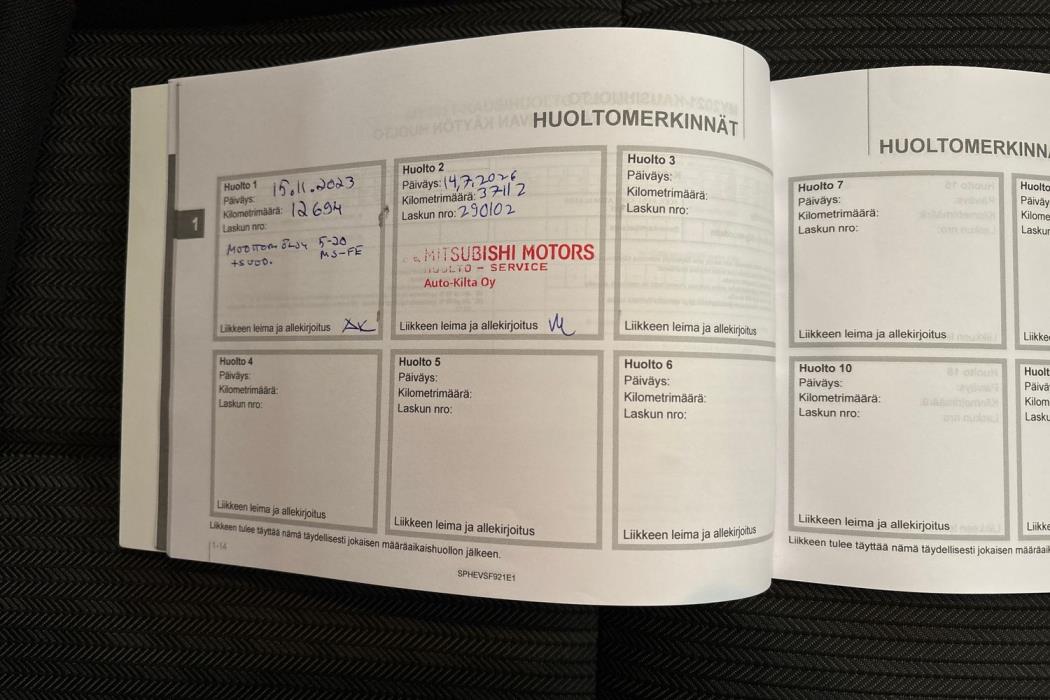 HUOLTOMERKINNÄT
Huolto 1
Päiväys: 15.11.2023
Kilometrimäärä: 12694
Laskun nro:
5-20
+suod. MS-FE
Liikkeen leima ja allekirjoitus AK
Huolto 2
Päiväys: 14.7.2026
Kilometrimäärä: 37112
Laskun nro: 290102
MITSUBISHI MOTORS
HUOLTO - SERVICE
Auto-Kilta Oy
Liikkeen leima ja allekirjoitus
Huolto 3
Päiväys:
Kilometrimäärä:
Laskun nro:
Liikkeen leima ja allekirjoitus
1
Huolto 4
Päiväys:
Kilometrimäärä:
Laskun nro:
Liikkeen leima ja allekirjoitus
Huolto 5
Päiväys:
Kilometrimäärä:
Laskun nro:
Liikkeen leima ja allekirjoitus
Huolto 6
Päiväys:
Kilometrimäärä:
Laskun nro:
Liikkeen leima ja allekirjoitus
Liikkeen tulee täyttää nämä täydellisesti jokaisen määräaikaishuollon jälkeen.
1-14
SPHEVSF921E1
HUOLTOMERKINN
Huolto 7
Päiväys:
Kilometrimäärä:
Laskun nro:
Liikkeen leima ja allekirjoitus
Huolto
Päiväy
Kilome
Laskur
Liikke
Huolto 10
Päiväys:
Kilometrimäärä:
Laskun nro:
Liikkeen leima ja allekirjoitus
Huolt
Päivä
Kilom
Lasku
Liikke
Liikkeen tulee täyttää nämä täydellisesti jokaisen määräaik